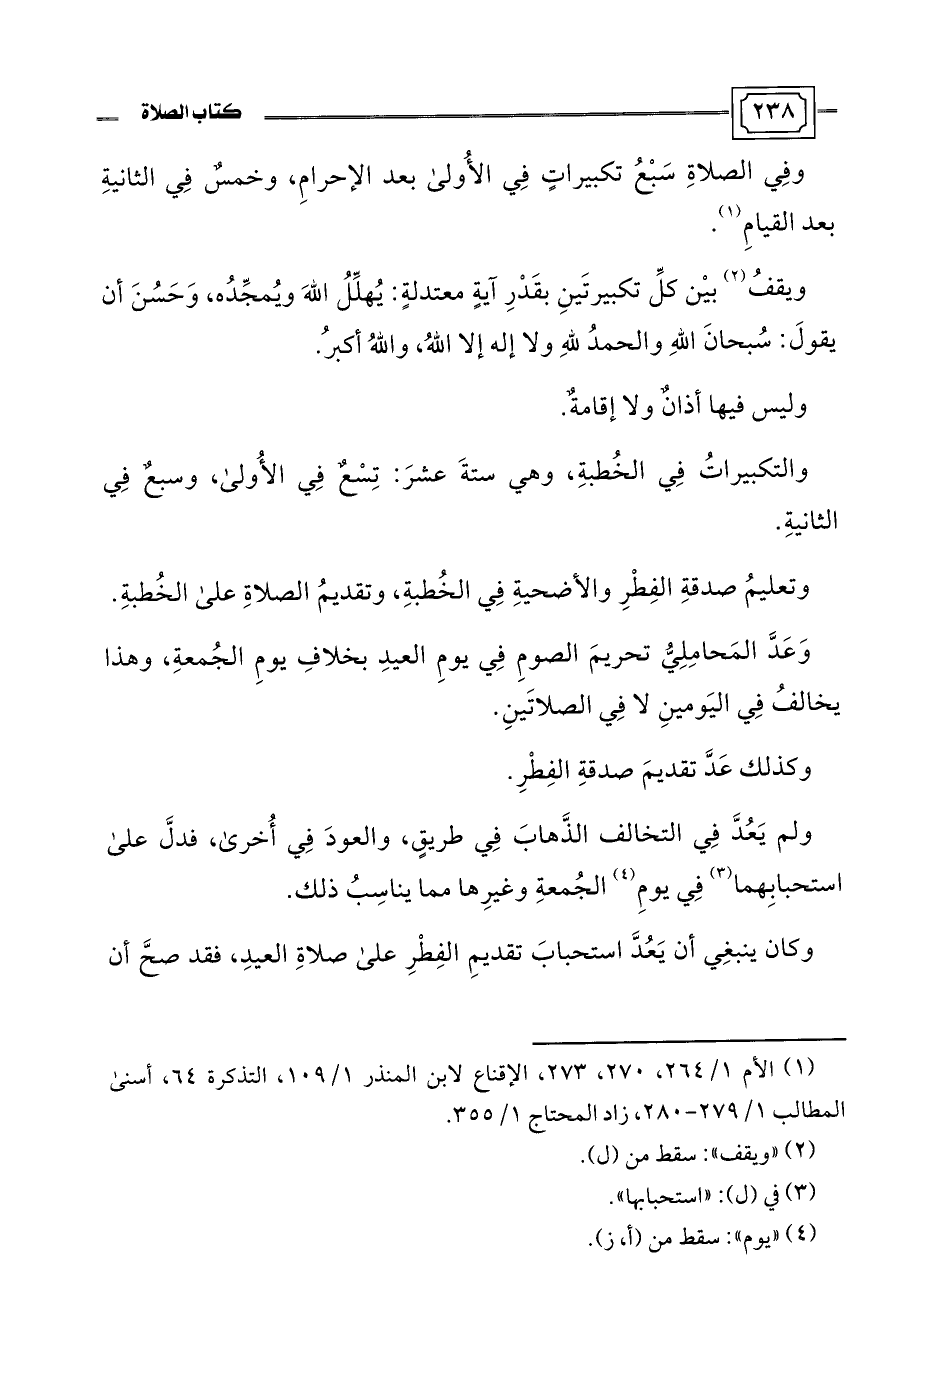 ٢٣٨ كتاب الصلاة
وفِي الصلاةِ سَبْعُ تكبيراتٍ فِي الأُولىٰ بعد الإحرامِ، وخمسٌ فِي الثانيةِ
بعد القيامِ(١).
ويقفُ(٢) بيْن كلِّ تكبيرتَينِ بقَدْرِ آيةٍ معتدلةٍ: يُهلِّلُ اللهَ ويُمجِّدُه، وَحَسُنَ أن
يقولَ: سُبحانَ اللهِ والحمدُ للهِ ولا إله إلا اللهُ، واللهُ أكبرُ.
وليس فيها أذانٌ ولا إقامةٌ.
والتكبيراتُ فِي الخُطبةِ، وهي ستةَ عشرَ: تِسْعٌ فِي الأُولىٰ، وسبعٌ فِي
الثانيةِ.
وتعليمُ صدقةِ الفِطْرِ والأضحيةِ فِي الخُطبةِ، وتقديمُ الصلاةِ علىٰ الخُطبةِ.
وَعَدَّ المَحامِلِيُّ تحريمَ الصومِ فِي يومِ العيدِ بخلافِ يومِ الجُمعةِ، وهذا
يخالفُ فِي اليَومينِ لا فِي الصلاتَينِ.
وكذلك عَدَّ تقديمَ صدقةِ الفِطْرِ.
ولم يَعُدَّ فِي التخالف الذَّهابَ فِي طريقٍ، والعودَ فِي أُخرىٰ، فدلَّ علىٰ
استحبابِهما(٣) فِي يومِ(٤) الجُمعةِ وغيرِها مما يناسِبُ ذلك.
وكان ينبغِي أن يَعُدَّ استحبابَ تقديمِ الفِطْرِ علىٰ صلاةِ العيدِ، فقد صحَّ أن
(١) الأم ١/ ٢٦٤، ٢٧٠، ٢٧٣، الإقناع لابن المنذر ١/ ١٠٩، التذكرة ٦٤، أسنىٰ
المطالب ١/ ٢٧٩-٢٨٠، زاد المحتاج ١/ ٣٥٥.
(٢) «ويقف»: سقط من (ل).
(٣) في (ل): «استحبابها».
(٤) «يوم»: سقط من (أ، ز).